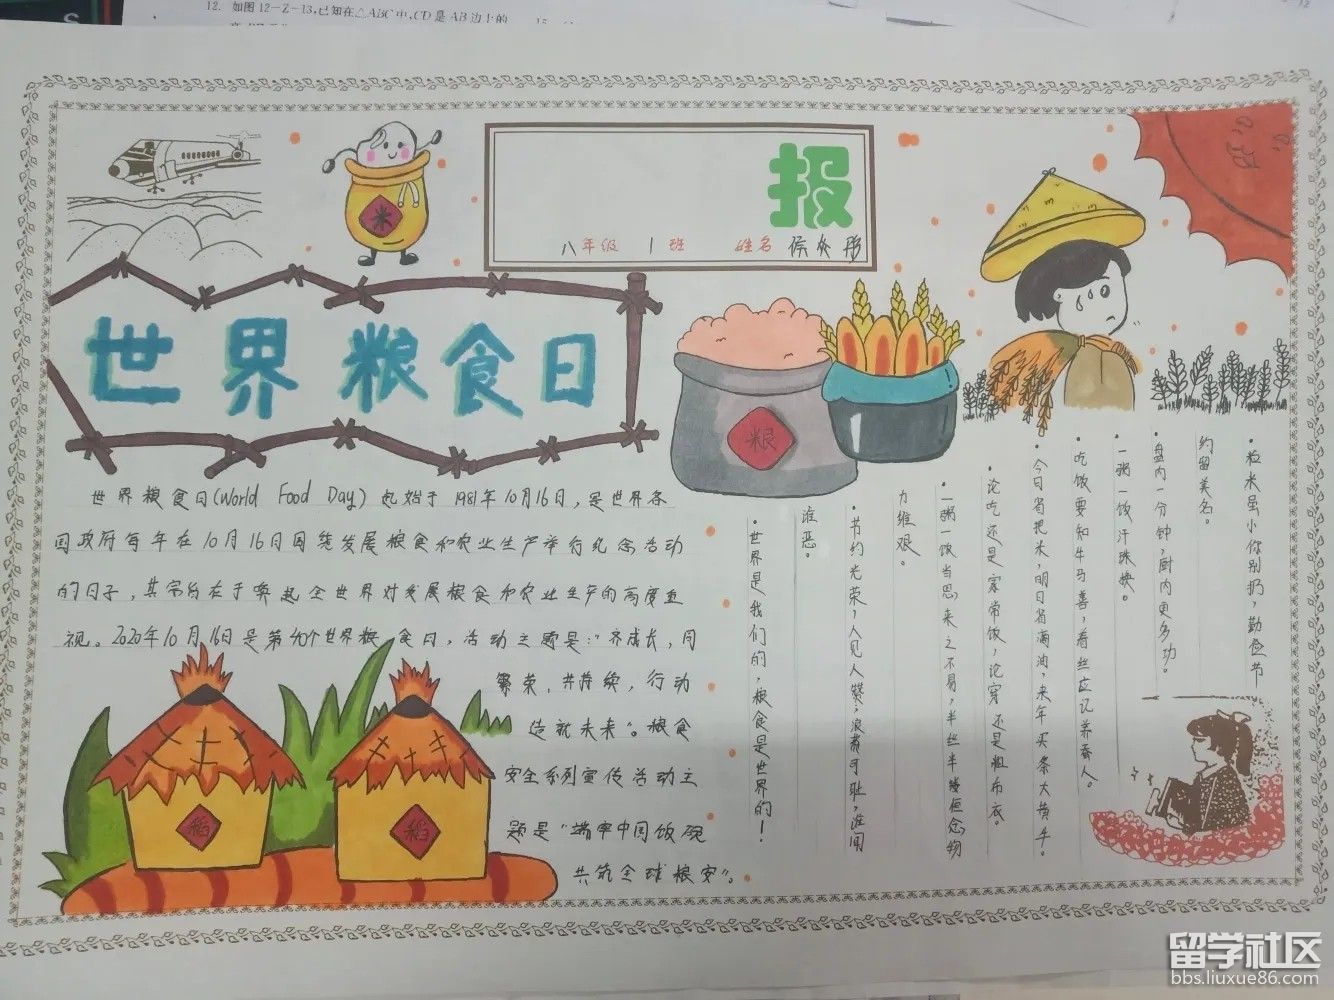 12. 如图12-Z-13,已知在△ABC中,CD是AB边上的
米
报
八年级 1班 姓名
世界粮食日
粮
世界粮食日(World Food Day) 起始于1981年10月16日,是世界各
国政府每年在10月16日围绕发展粮食和农业生产举行纪念活动
的日子,其宗旨在于唤起全世界对发展粮食和农业生产的高度重
视。2020年10月16日是第40个世界粮食日,活动主题是:“齐成长,同
繁荣,共持续,行动
造就未来”。粮食
安全系列宣传活动主
题是“端牢中国饭碗
共筑全球粮安”。
稻
稻
·粒米虽小你别扔,勤俭节
约留美名。
·盘内一分钟,厨内更多功。
·一粥一饭汗珠换。
·吃饭要知牛马善,看丝应记养蚕人。
·今日省把米,明日省滴油,来年买条大横牛。
·论吃还是家常饭,论穿还是粗布衣。
·一粥一饭当思来之不易,半丝半缕恒念物
力维艰。
·节约光荣,人见人繁,浪费可耻,谁闻
谁恶。
·世界是我们的,粮食是世界的!
留学社区
bbs.liuxue86.com